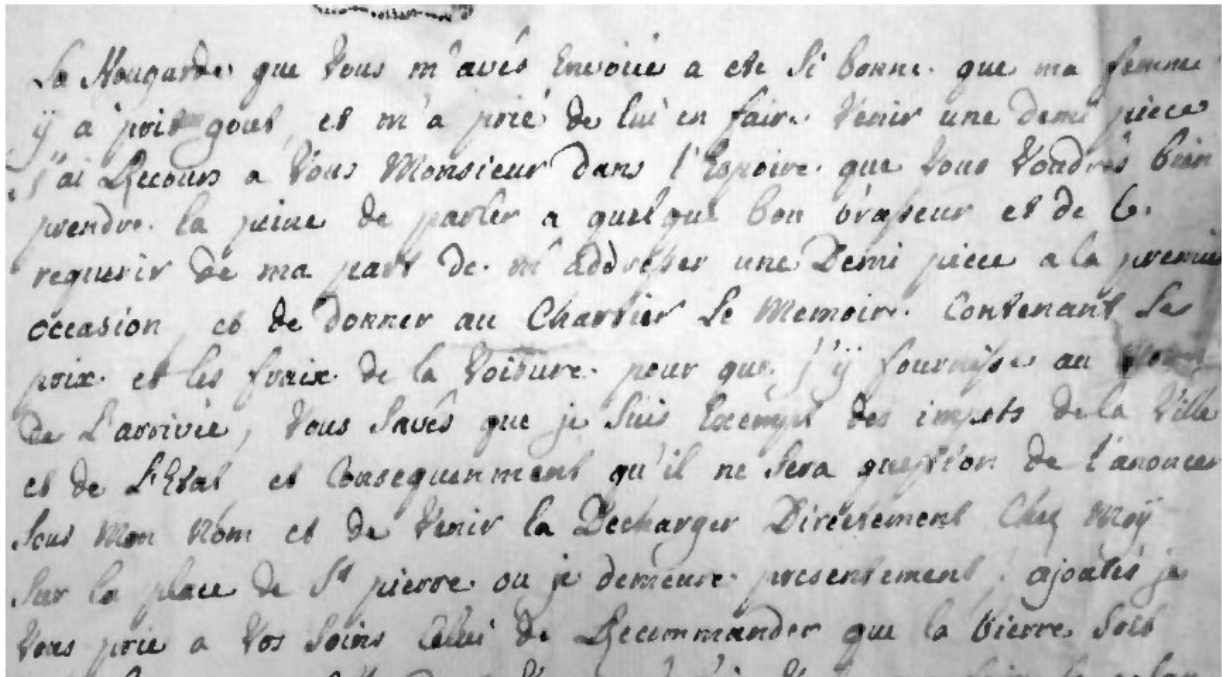 La Hougarde que Vous m'avés Envoiée a eté Si bonne que ma femme
ÿ a pris gout, et m'a prié de lui en faire Venir une demi piece
j'ai Recours a Vous Monsieur dans l'Espoire que Vous Voudrés bien
prendre la peine de parler a quelque bon brasseur et de le
requerir de ma part de m'addresser une Demi piece a la premiere
occasion, et de donner au Chartier Le Memoire Contenant Le
prix et les fraix de la Voiture pour que j'ÿ fournisse au
de L'arrivée, Vous Savés que je Suis Exempt des impots de la Ville
et de L'Etat et Consequenment qu'il ne Sera question de l'anoncer
Sous Mon Nom et de Venir la Decharger Directement Chez Moÿ
Sur la place de St pierre ou je demeure presentement; ajoutés je
Vous prie a Vos Soins Celui de Recommander que la bierre Soit